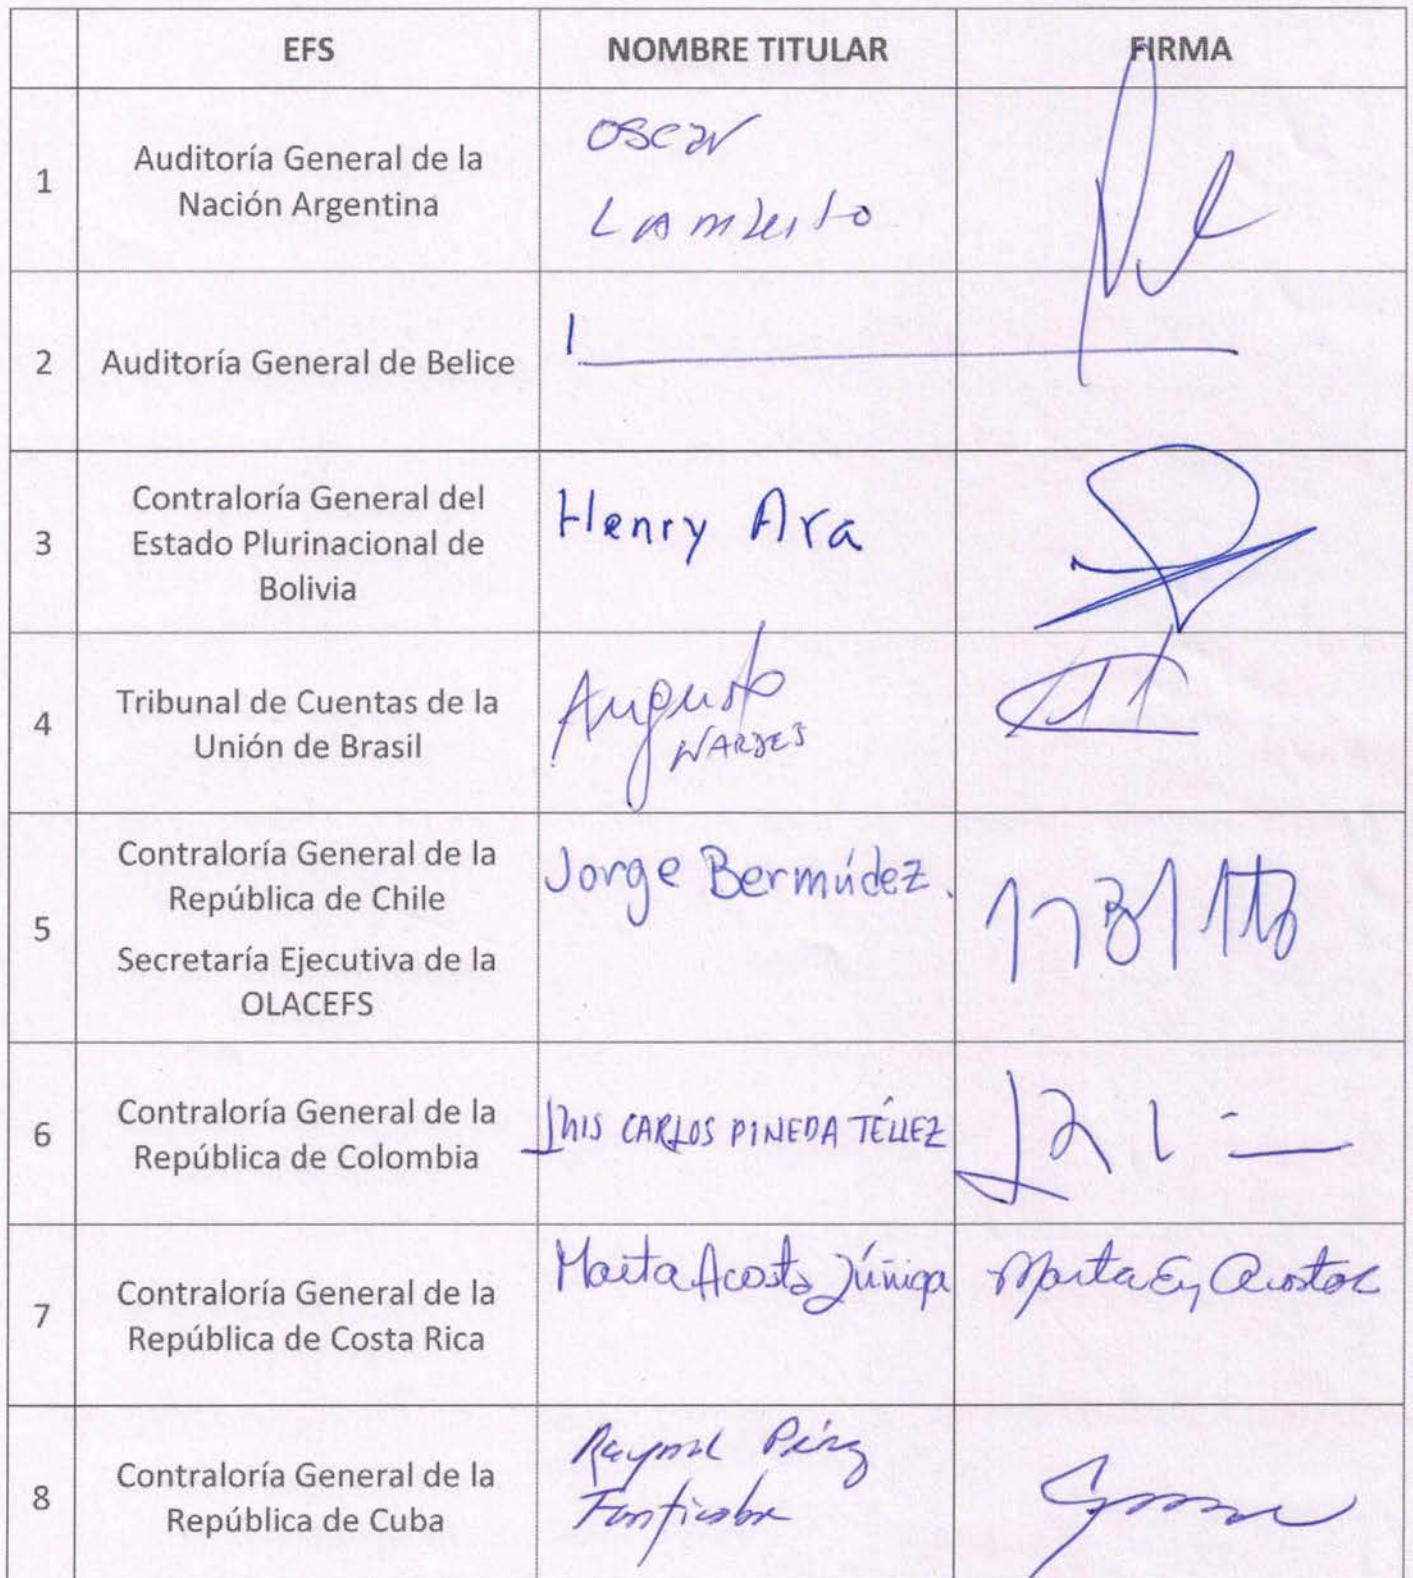 EFS NOMBRE TITULAR FIRMA
1
Auditoría General de la
Nación Argentina
Oscar
2
Auditoría General de Belice
3
Contraloría General del
Estado Plurinacional de
Bolivia
Henry Ara
4
Tribunal de Cuentas de la
Unión de Brasil
Augusto
NARDES
5
Contraloría General de la
República de Chile
Secretaría Ejecutiva de la
OLACEFS
Jorge Bermúdez.
6
Contraloría General de la
República de Colombia
LUIS CARLOS PINEDA TÉLLEZ
7
Contraloría General de la
República de Costa Rica
Marta Acosta Zúñiga
8
Contraloría General de la
República de Cuba